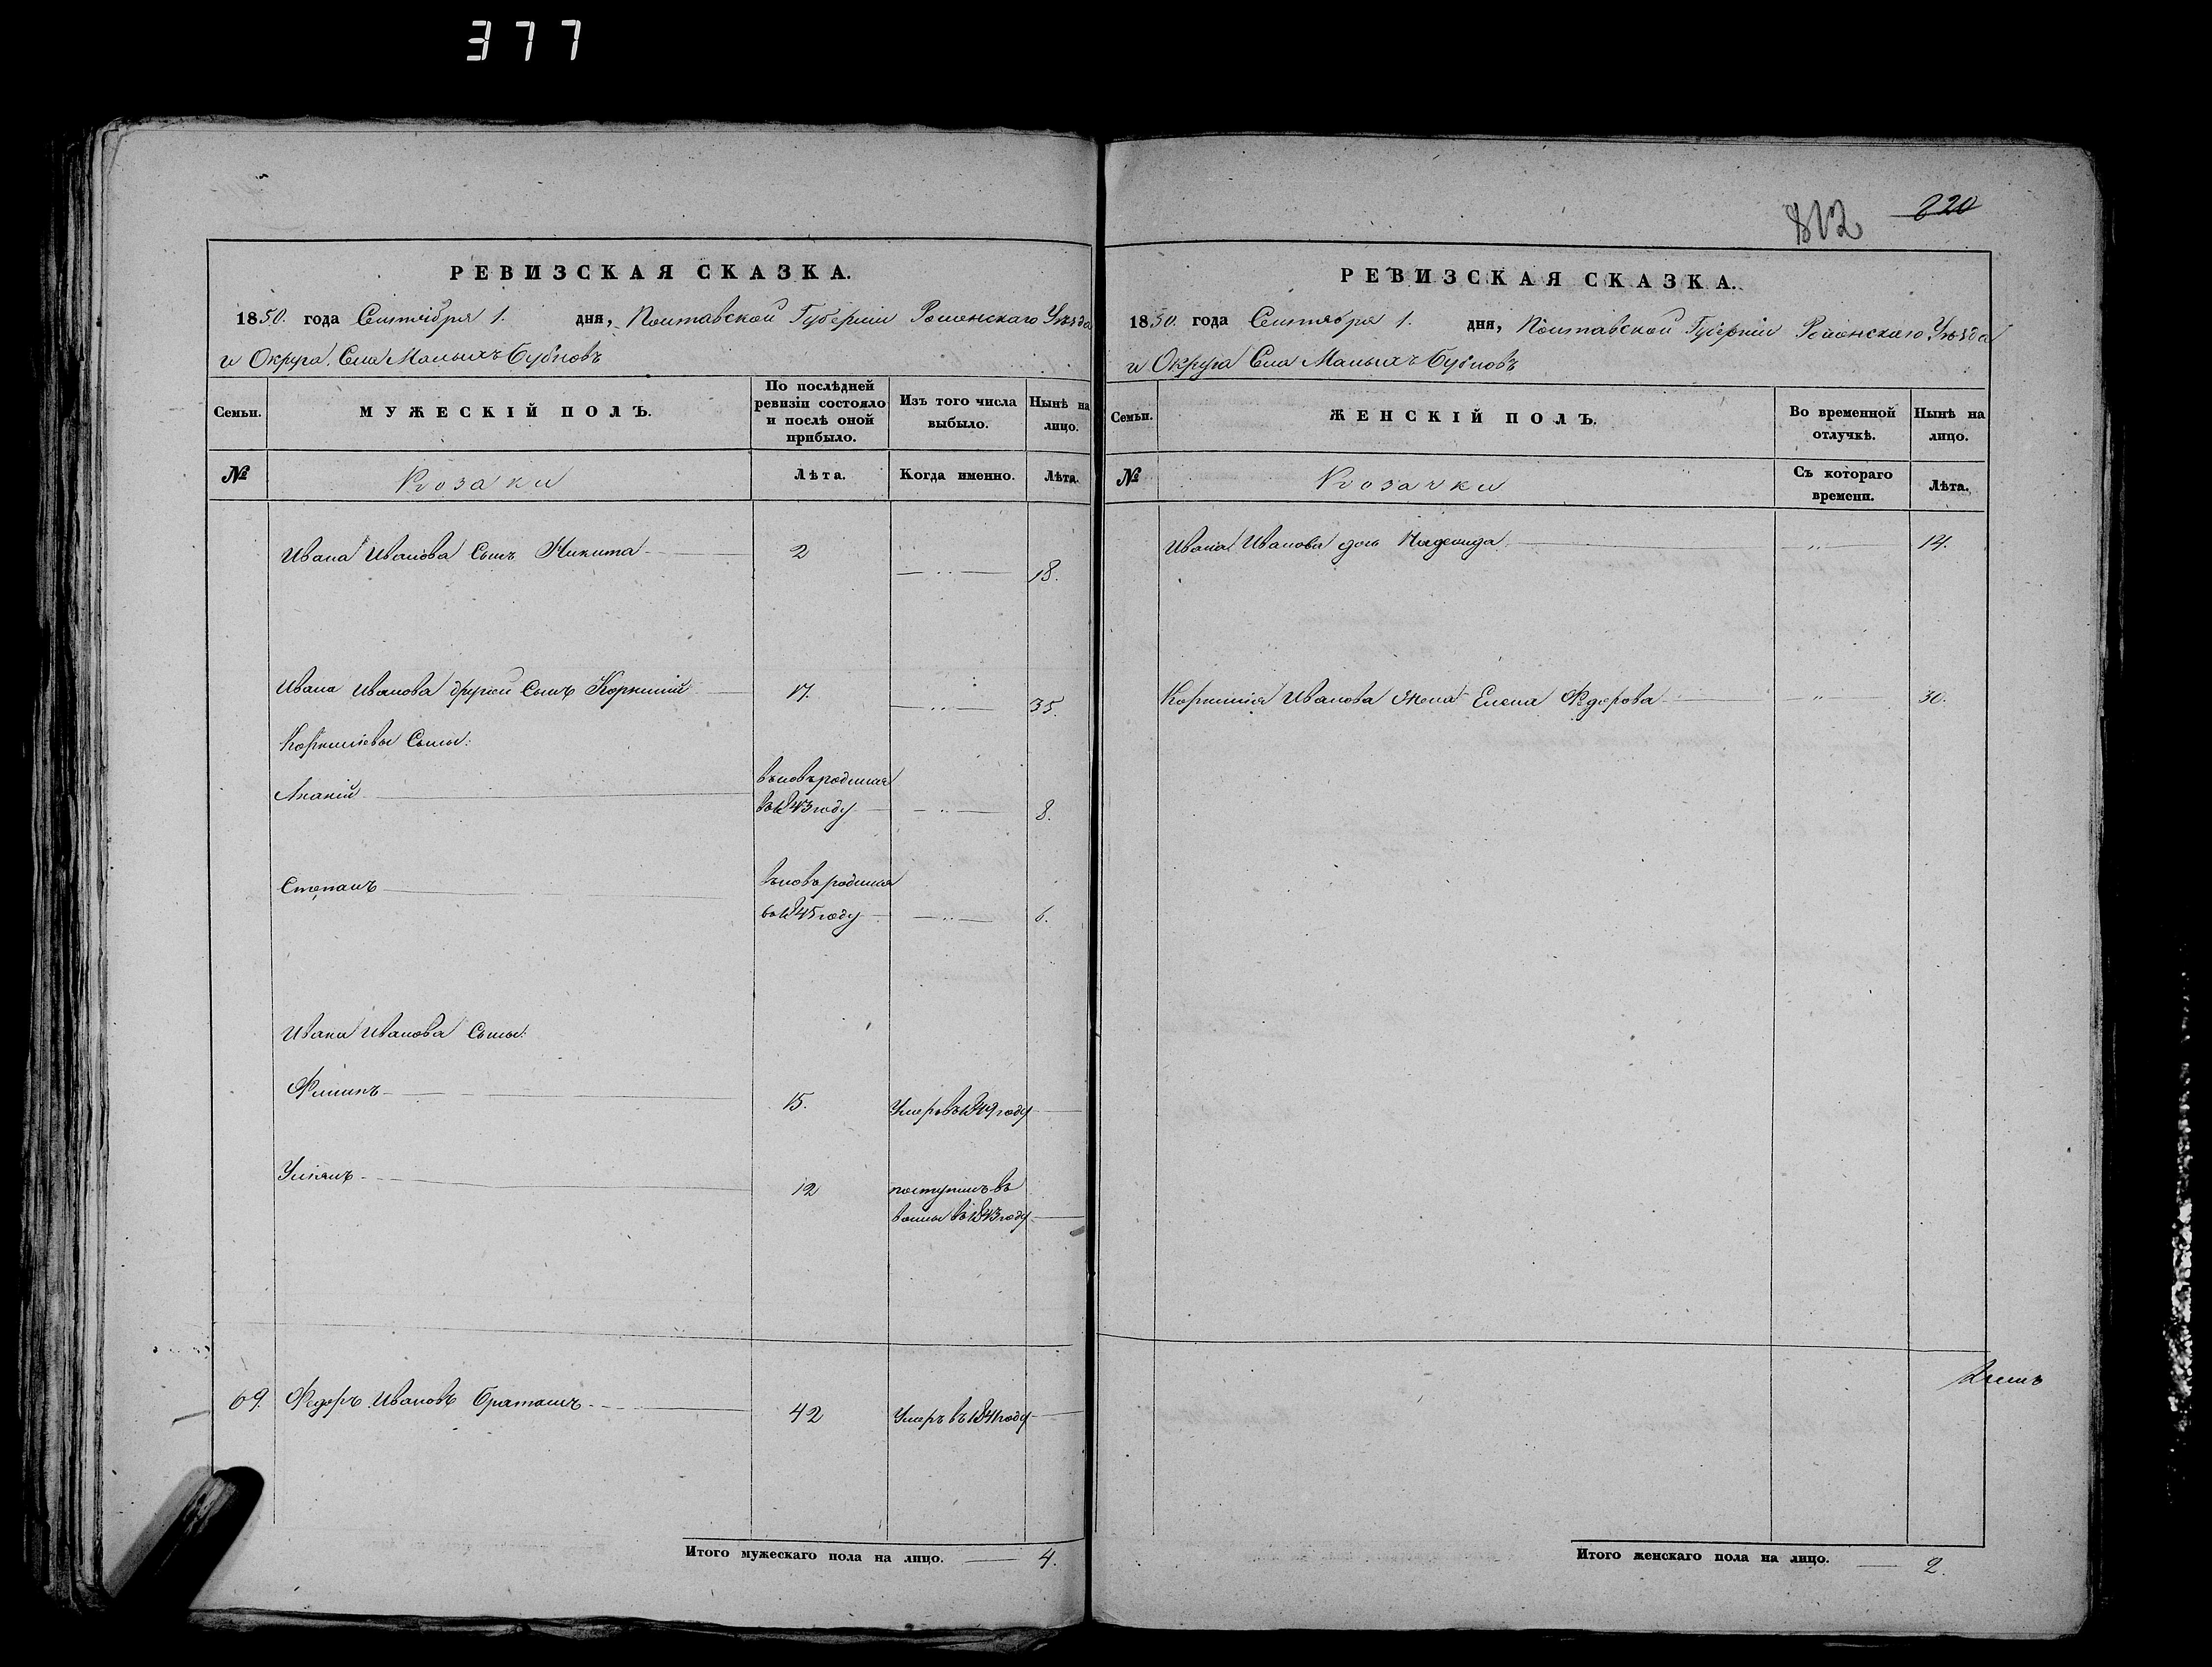 377
РЕВИЗСКАЯ СКАЗКА.
1850. года Сентября 1. дня, Полтавской Губерніи Роменскаго Уѣзда
и Округа. Села Малыхъ Бубновъ
Семьи.
МУЖЕСКІЙ ПОЛЪ.
По послѣдней ревизіи состояло и послѣ оной прибыло.
Изъ того числа выбыло.
Нынѣ на лицо.
№
Козаки
Лѣта.
Когда именно.
Лѣта.
Ивана Иванова Сынъ Никита 2 18.
Ивана Иванова другой Сынъ Корнилій 17. 35.
Корниліевы Сыны:
Ананій вновьродился
въ 1843 году 8.
Степанъ вновьродился
въ 1845 году 6.
Ивана Иванова Сыны:
Филипъ 15. Умеръ въ 1849 году
Уліянъ 12 поступилъ въ
въ 1843 году
69. Федоръ Ивановъ Браташъ 42 Умеръ въ 1841 году
Итого мужескаго пола на лицо. 4.
812 820
РЕВИЗСКАЯ СКАЗКА.
1850. года Сентября 1. дня, Полтавской Губерніи Роменскаго Уѣзда
и Округа Села Малыхъ Бубновъ
Семьи.
ЖЕНСКІЙ ПОЛЪ.
Во временной отлучкѣ.
Нынѣ на лицо.
№
Козачки
Съ котораго времени.
Лѣта.
Ивана Иванова дочь Надежда „ 14.
Корнилія Иванова Жена Елена Федорова „ 30.
Итого женскаго пола на лицо. 2.